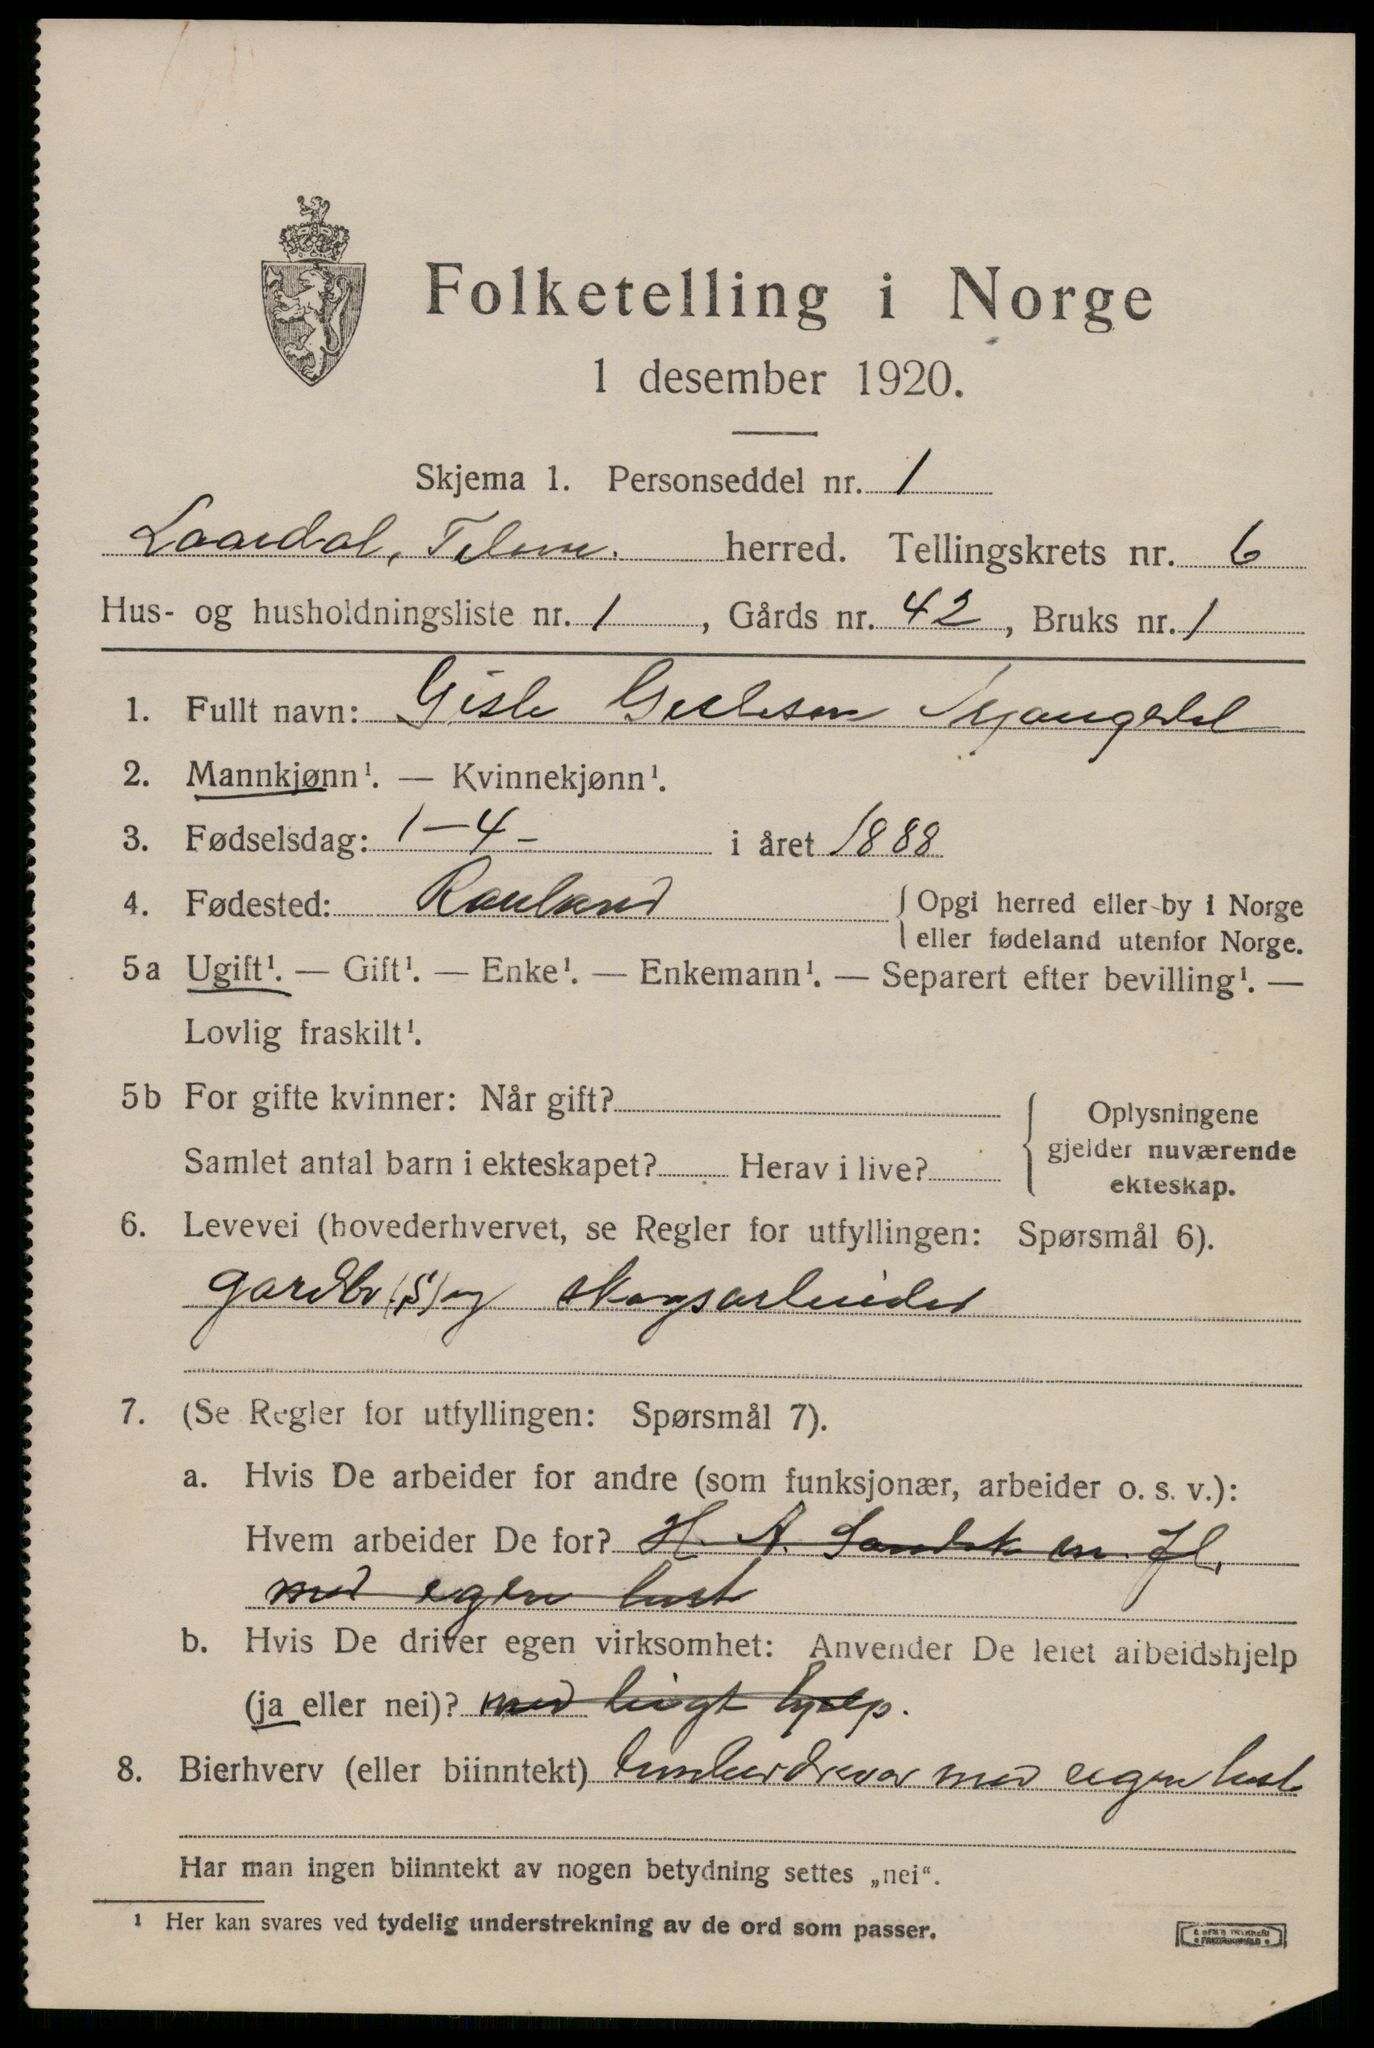 Folketelling i Norge
1 desember 1920.
Skjema 1. Personseddel nr. 1
Laardal, Telem. herred. Tellingskrets nr. 6
Hus- og husholdningsliste nr. 1, Gårds nr. 42, Bruks nr. 1
1. Fullt navn: Gisle Gisleson
2. Mannkjønn¹. — Kvinnekjønn¹.
3. Fødselsdag: 1-4- i året 1888
4. Fødested: Rauland { Opgi herred eller by i Norge
eller fødeland utenfor Norge.
5a Ugift¹. — Gift¹. — Enke¹. — Enkemann¹. — Separert efter bevilling¹. —
Lovlig fraskilt¹.
5b For gifte kvinner: Når gift?
Samlet antal barn i ekteskapet? Herav i live?
{ Oplysningene
gjelder nuværende
ekteskap.
6. Levevei (hovederhvervet, se Regler for utfyllingen: Spørsmål 6).
gardbr (S) og skogsarbeider
7. (Se Regler for utfyllingen: Spørsmål 7).
a. Hvis De arbeider for andre (som funksjonær, arbeider o. s. v.):
Hvem arbeider De for? H. A.
med egen hest
b. Hvis De driver egen virksomhet: Anvender De leiet arbeidshjelp
(ja eller nei)? med leigt hjelp.
8. Bierhverv (eller biinntekt) med eigen hest
Har man ingen biinntekt av nogen betydning settes „nei“.
¹ Her kan svares ved tydelig understrekning av de ord som passer.